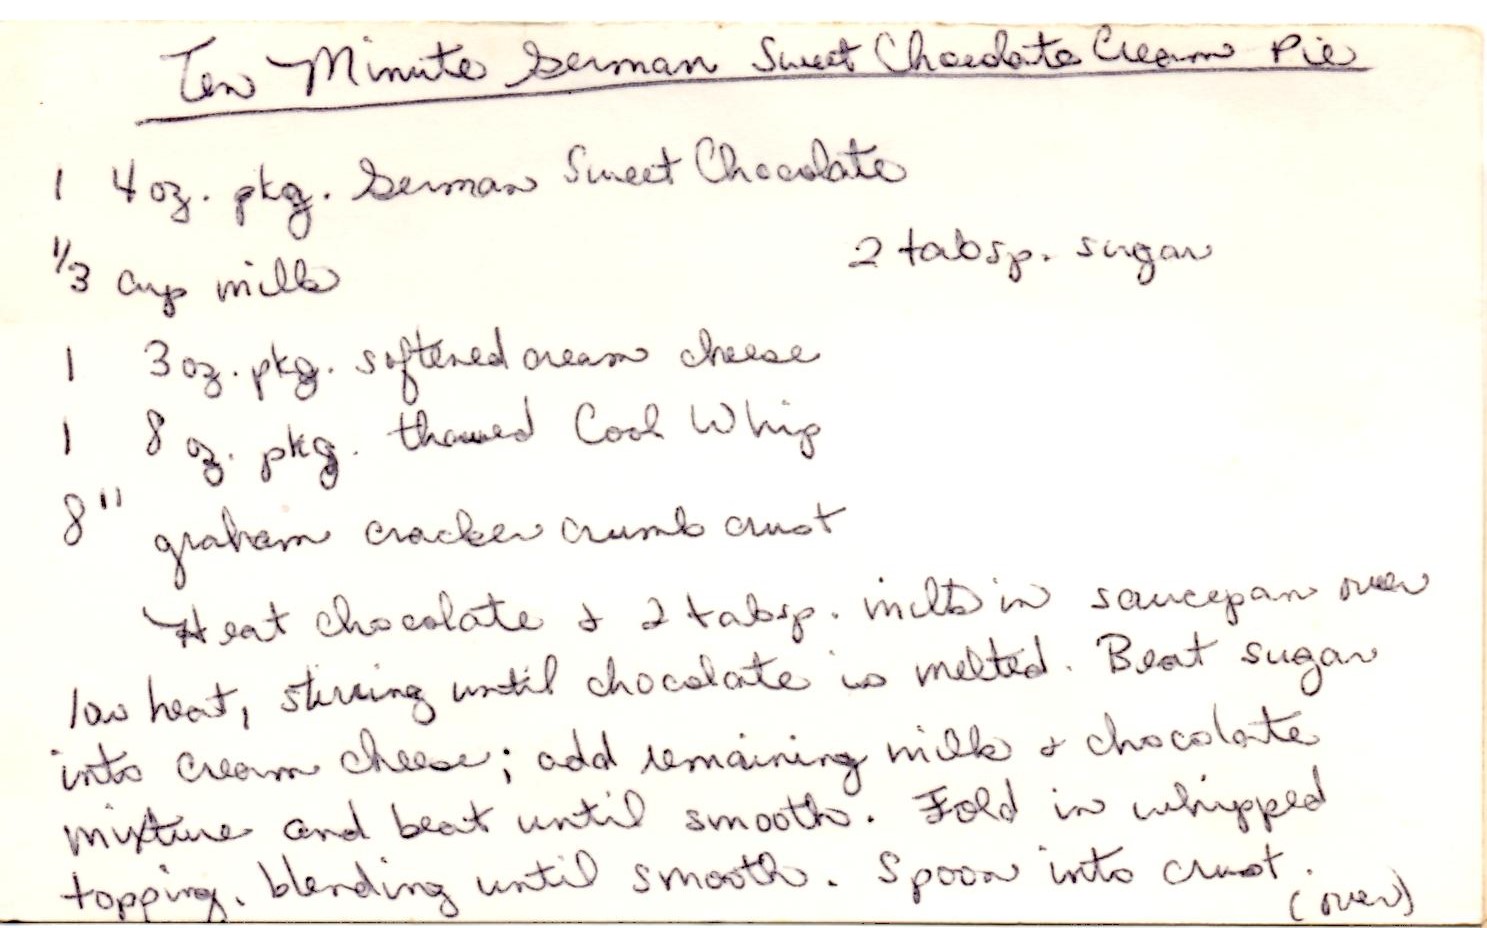 Ten Minute German Sweet Chocolate Cream Pie
1 4 oz. pkg. German Sweet Chocolate
1/3 cup milk
2 tabsp. sugar
1 3 oz. pkg. softened cream cheese
1 8 oz. pkg. thawed Cool Whip
8" graham cracker crumb crust
Heat chocolate & 2 tabsp. milk in saucepan over
low heat, stirring until chocolate is melted. Beat sugar
into cream cheese; add remaining milk & chocolate
mixture and beat until smooth. Fold in whipped
topping, blending until smooth. Spoon into crust.
(over)